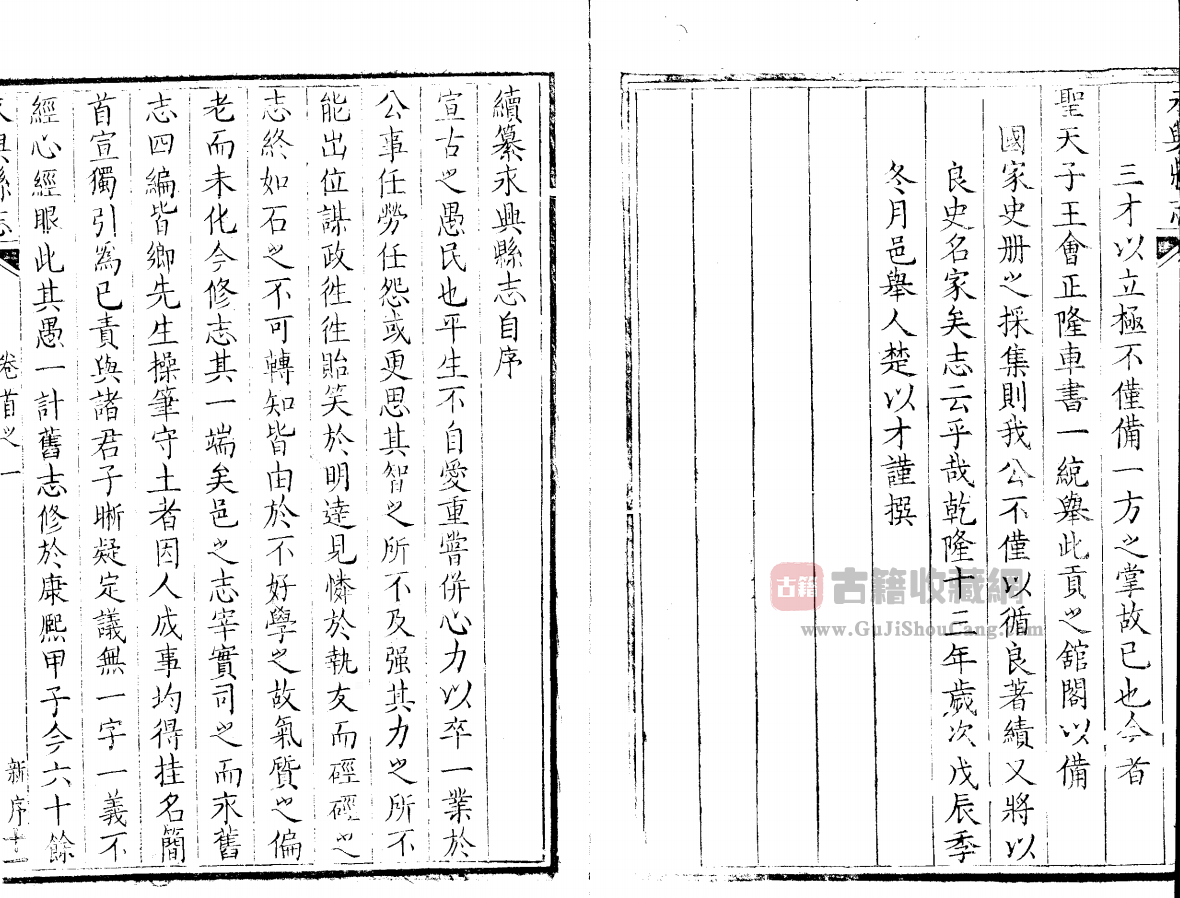 永興縣志
三才以立極不僅備一方之掌故已也今首
聖天子王會正隆車書一統舉此貢之舘閣以備
國家史册之採集則我公不僅以循良著績又將以
良史名家矣志云乎哉乾隆十三年歲次戊辰季
冬月邑舉人楚以才謹撰
續纂永興縣志自序
宣古之愚民也平生不自愛重嘗併心力以卒一業於
公事任勞任怨或更思其智之所不及强其力之所不
能出位謀政徃徃貽笑於明達見憐於執友而硜硜之
志終如石之不可轉知皆由於不好學之故氣質之偏
老而未化今修志其一端矣邑之志宰實司之而永舊
志四編皆鄉先生操筆守土者因人成事均得挂名簡
首宣獨引爲已責與諸君子晰疑定議無一字一義不
經心經眼此其愚一計舊志修於康熈甲子今六十餘
永興縣志
卷首之一
新序十二
古籍
古籍收藏網
www.GuJiShouCang.com